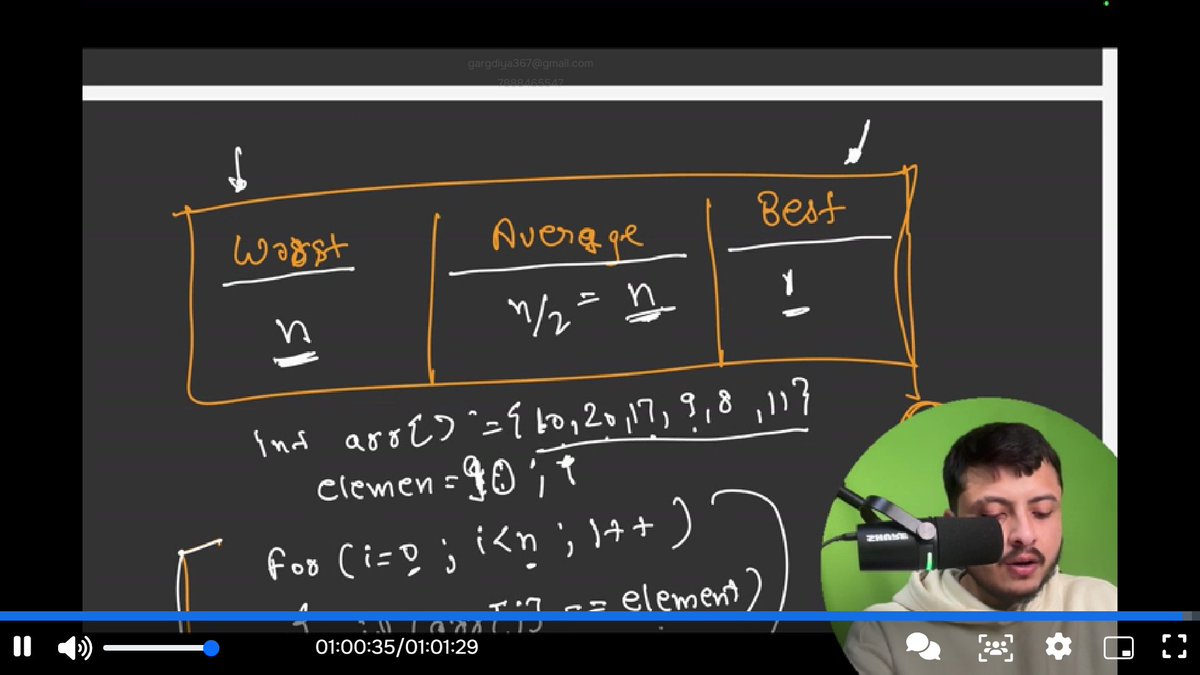 gargdiya367@gmail.com
7888466547
Worst Average Best
n n/2 = n 1
int arr[] = {10,20,17,9,8,11}
elemen =
for (i=0; i<n; i++)
if (arr[i] == element)
SHURE
01:00:35/01:01:29